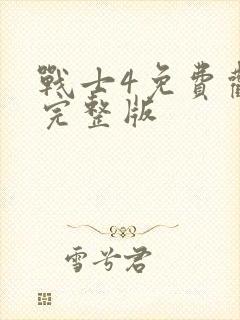 戰士4免費
完整版
雪兮君